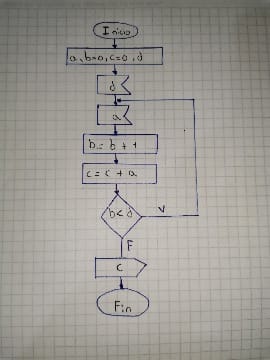 Inicio
a, b=0, c=0, d
d
a
b = b + 1
c = c + a
b < d
V
F
c
Fin